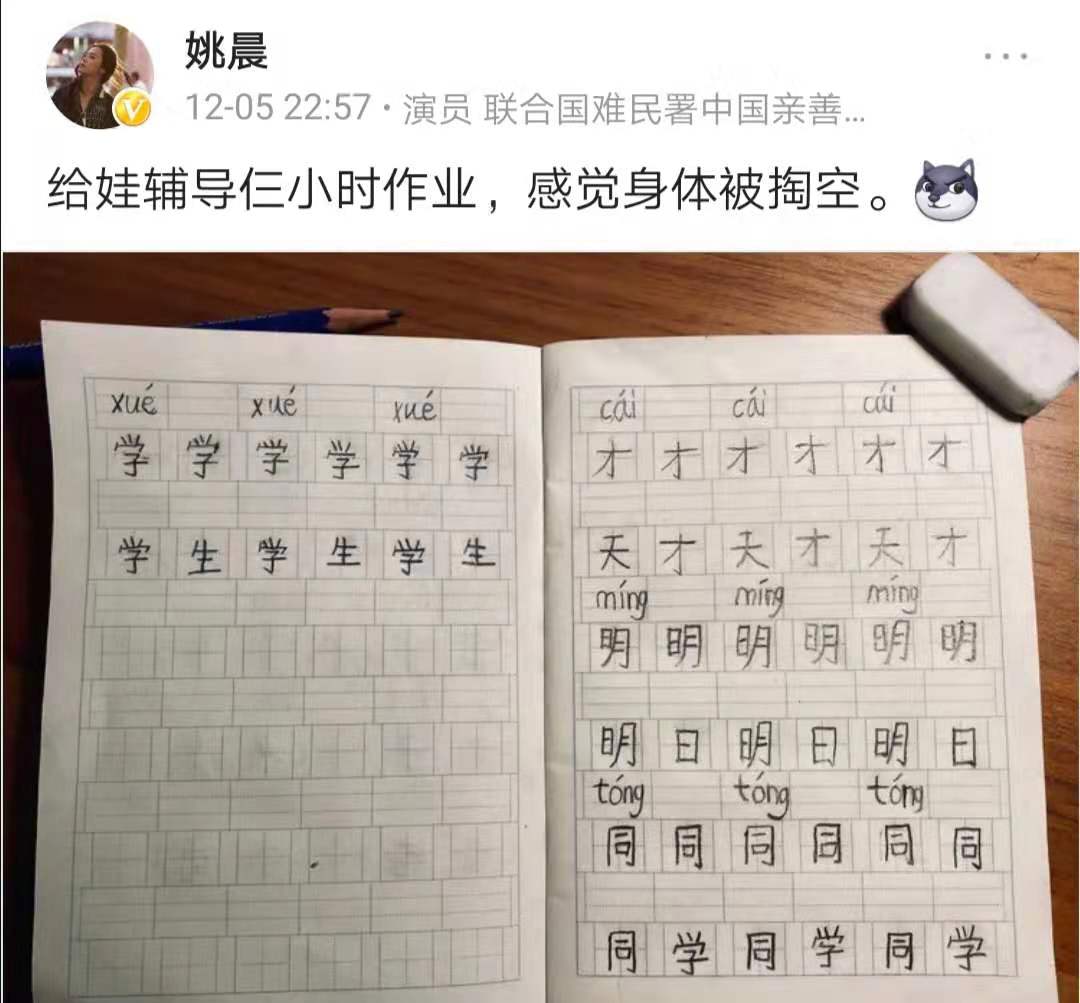 姚晨
12-05 22:57・演员 联合国难民署中国亲善...
给娃辅导仨小时作业，感觉身体被掏空。
xué xué xué
学 学 学 学 学 学
学 生 学 生 学 生
cái cái cái
才 才 才 才 才 才
天 才 天 才 天 才
míng míng míng
明 明 明 明 明 明
明 日 明 日 明 日
tóng tóng tóng
同 同 同 同 同 同
同 学 同 学 同 学